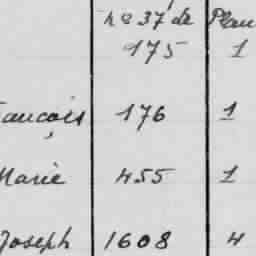 no 37 de Plan
175 1
ançois 176 1
Marie 455 1
Joseph 1608 4